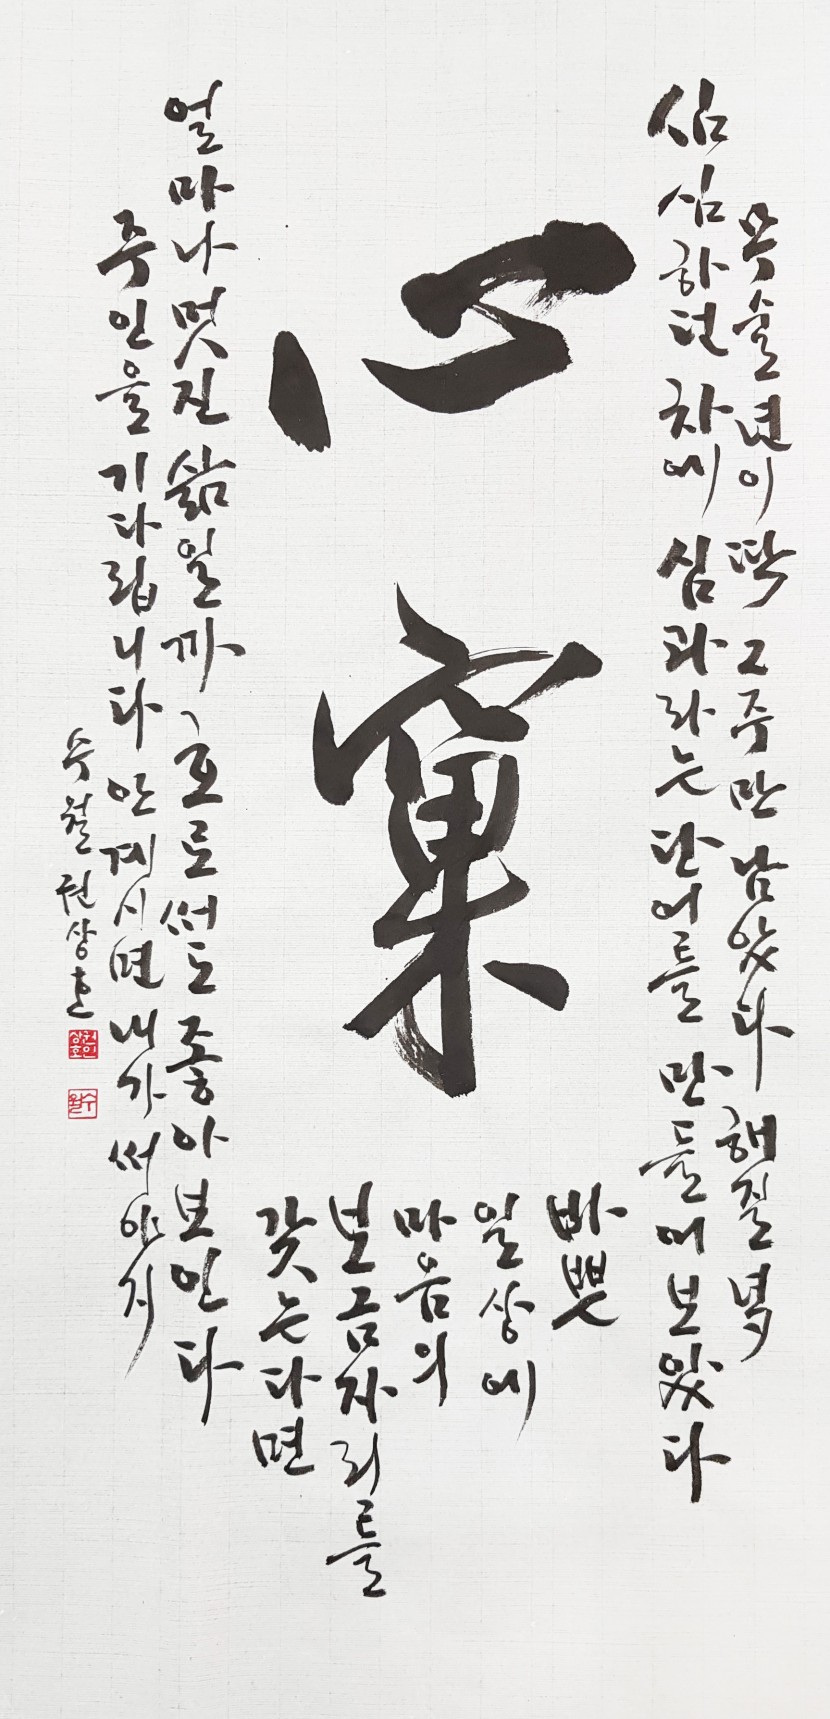 무술년이 딱 2주만 남았다 해질녘
심심하던 차에 심과라는 단어를 만들어 보았다
心窠
바쁜
일상에
마음의
보금자리를
갖는다면
얼마나 멋진 삶일까 호로 써도 좋아 보인다
주인을 기다립니다 안 계시면 내가 써야지
수월 권상호
권인상호
수월